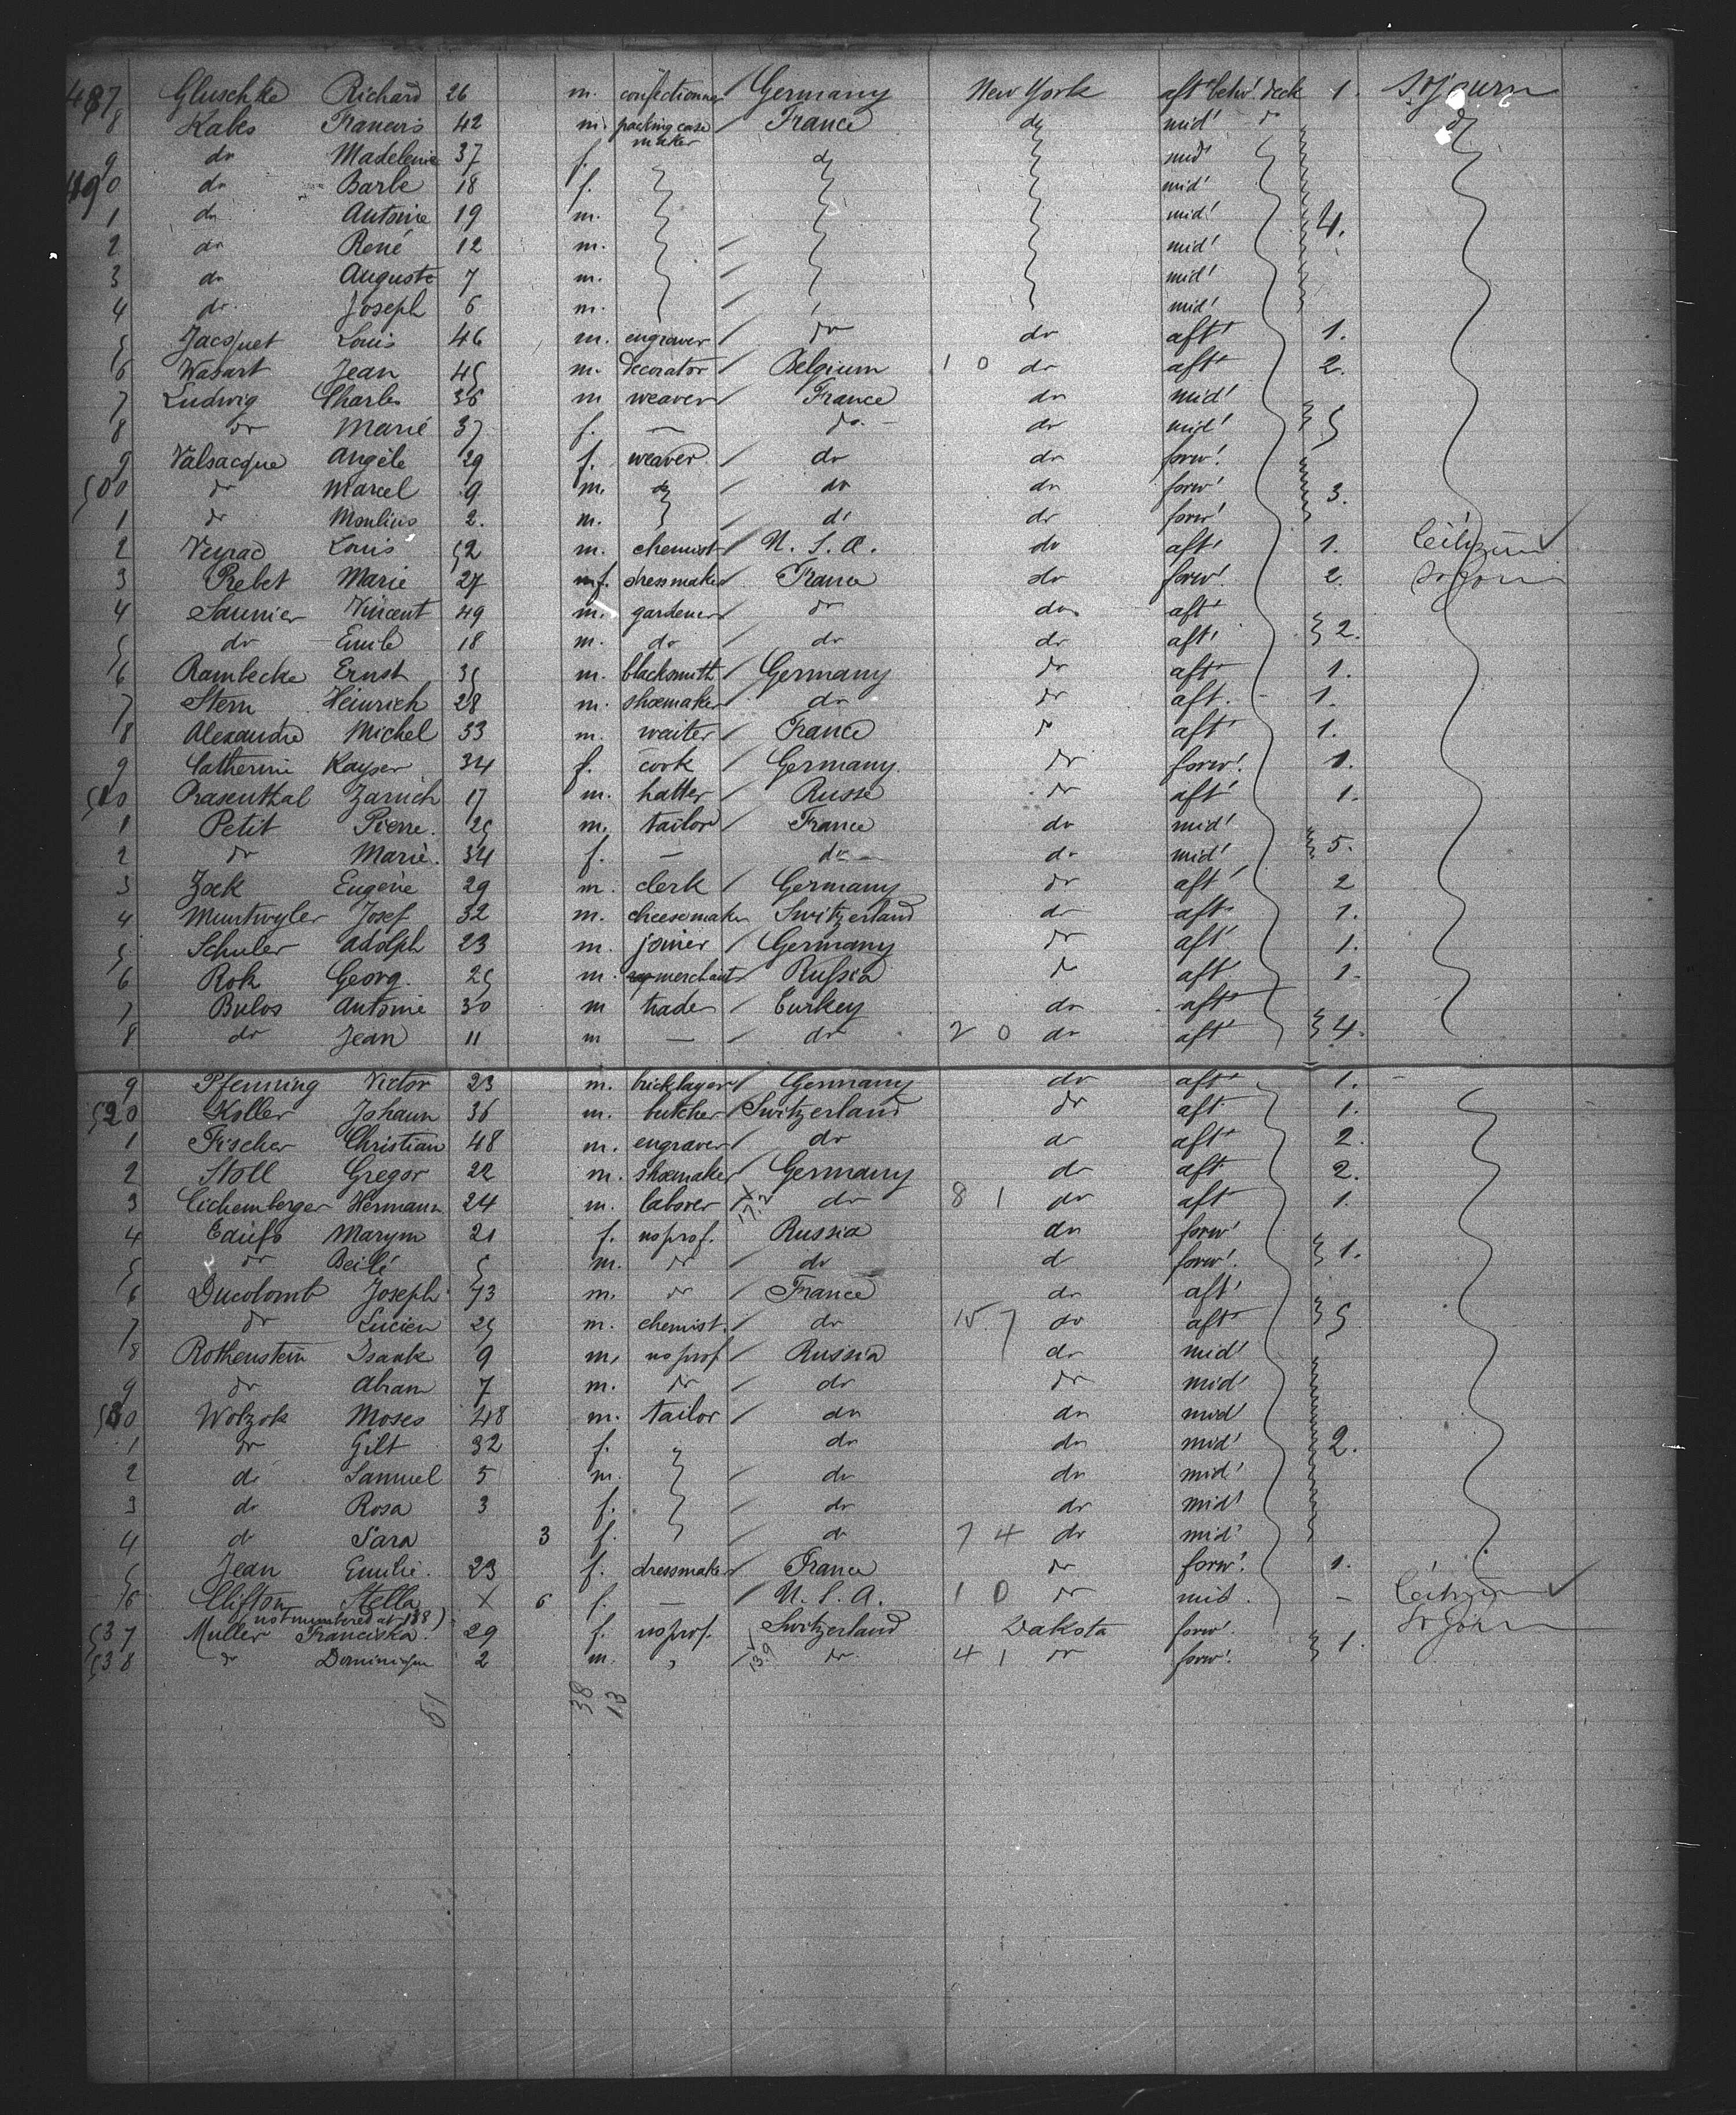 487 Gluschke Richard 26 m. confectioner / Germany New York aft betw. deck 1. Sojourn
8 Kales Francois 42 m. packing case maker / France do mid' do do
9 do Madeleine 37 f. do mid'
490 do Barbe 18 f. mid'
1 do Antoine 19 m. mid' 4.
2 do René 12 m. / mid'
3 do Auguste 7 m. / mid'
4 do Joseph 6 m. / mid'
5 Jacquet Louis 46 m. engraver / do do aft' 1.
6 Wasart Jean 45 m. decorator / Belgium 1 0 do aft' 2.
7 Ludwig Charles 36 m weaver / France do mid'
8 do Marie 37 f. — do. do mid' 5
9 Valsacque Angèle 29 f. weaver / do do forw'.
500 do Marcel 9 m. do / do do forw' 3.
1 do 2. m. / do do forw'
2 Veyrac Louis 52 m. chemist / U. S. A. do aft' 1. Citizen ✓
3 Rebet Marie 27 f. dressmaker France do forw'. 2. Sojourn
4 Saunier Vincent 49 m. gardener / do do aft'
5 do Emile 18 m. do / do do aft' 2.
6 Rambecke Ernst 35 m. blacksmith / Germany do aft' 1.
7 Stern Heinrich 28 m. shoemaker do do aft. 1.
8 Alexandre Michel 33 m. waiter / France do aft' 1.
9 Catherine Kayser 34 f. cook / Germany do forw'. 1.
510 Rasenthal Zaruch 17 m. hatter / Russe do aft' 1.
1 Petit Pierre. 25 m. tailor / France do mid'
2 do Marie. 34 f. — do do mid' 5.
3 Zock Eugene 29 m. clerk / Germany do aft' 2
4 Muntwyler Josef 32 m. cheesemaker Switzerland do aft' 1.
5 Schuler Adolph 23 m. joiner / Germany do aft' 1.
6 Rok Georg. 25 m. merchant / Russia do aft' 1.
7 Bulos Antoine 30 m trader / Turkey do aft'
8 do Jean 11 m — / do 2 0 do aft' 4.
9 Pfenning Victor 23 m. bricklayer / Germany do aft' 1.
520 Koller Johann 36 m. butcher / Switzerland do aft' 1.
1 Fischer Christian 48 m. engraver / do do aft' 2.
2 Stoll Gregor 22 m. shoemaker / Germany do aft' 2.
3 Eichemberger Hermann 24 m. laborer X 17.2 do 8 1 do aft' 1.
4 Marym 21 f. no prof. Russia do forw'
5 do Beilé 5 m. do / do do forw'. 1.
6 Ducolomb Joseph 73 m. do / France do aft'
7 do Lucien 25 m. chemist. / do 15 7 do aft' 5
8 Rothenstein Isaak 9 m. no prof / Russia do mid'
9 do Abram 7 m. do / do do mid'
530 Wolzok Moses 48 m. tailor / do do mid'
1 do Gilt 32 f. do do mid' 2.
2 do Samuel 5 m. / do do mid'
3 do Rosa 3 f. / do do mid'
4 do Sara 3 f. / do 7 4 do mid'
5 Jean Emilie. 23 f. dressmaker / France do forw'. 1.
16 Clifton Stella X 6 f. — / U. S. A. 1 0 do mid. – Citizen ✓
(not numbered at 138)
537 Muller Franciska. 29 f. no prof. Switzerland Dakota forw'. Sojourn
538 do Dominique 2 m. / 13.9 do 4 1 do forw'. 1.
51 38 13